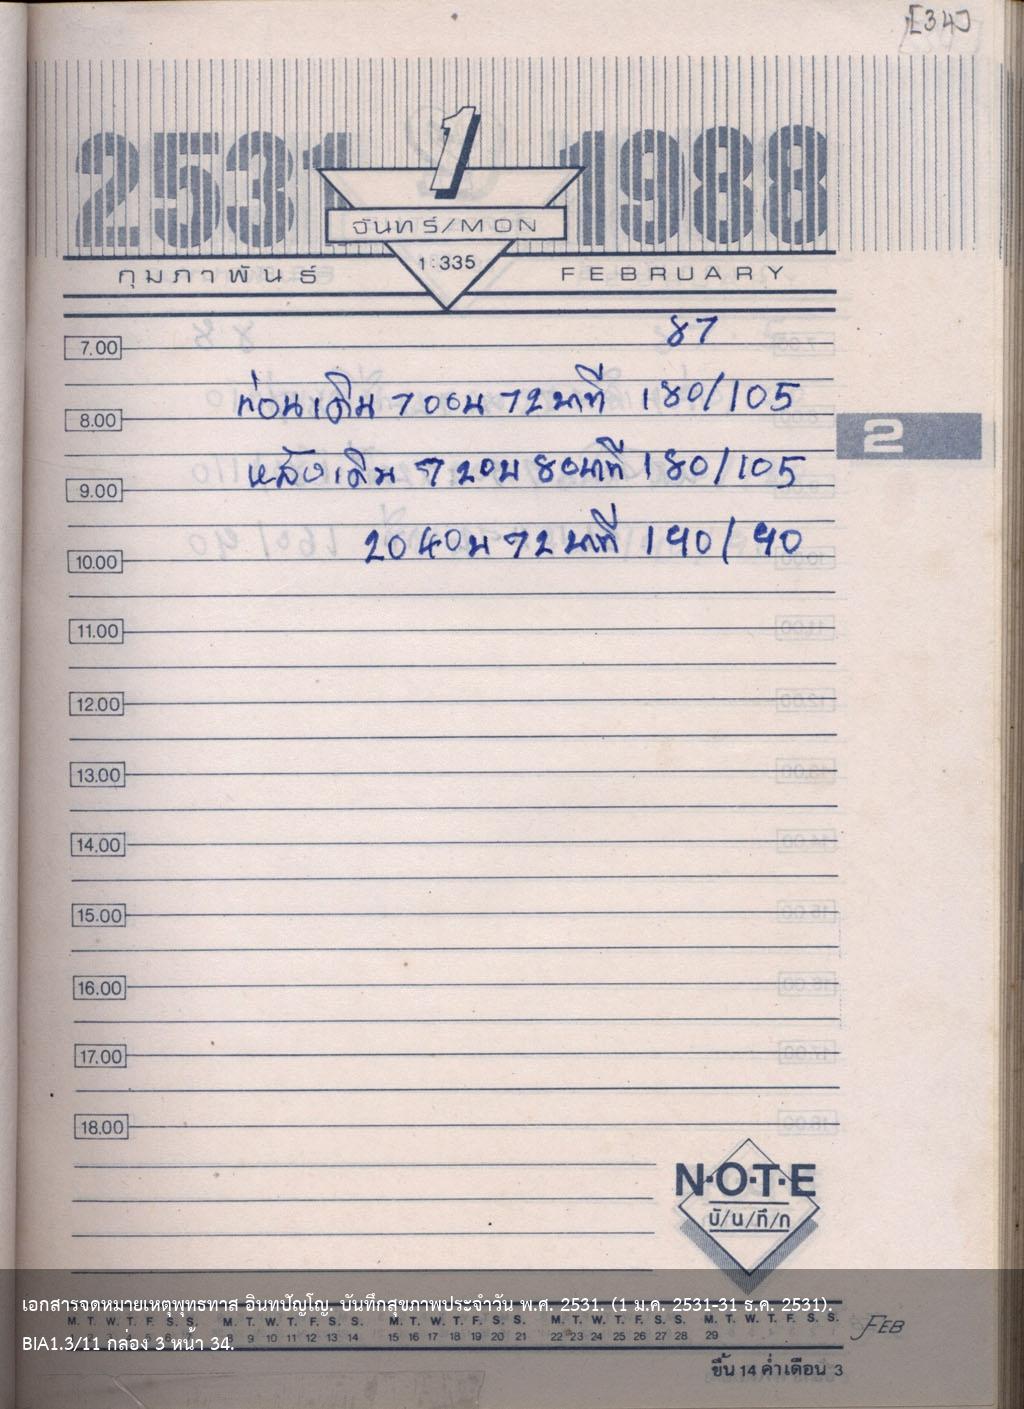 [34]
2531 1 1988
จันทร์/MON
กุมภาพันธ์ 1:335 FEBRUARY
87
7.00
ก่อนเดิน 7 00น 72 นาที 180/105
8.00
2
หลังเดิน 7 20น 80นาที 180/105
9.00
20 40น 72 นาที 140/90
10.00
11.00
12.00
13.00
14.00
15.00
16.00
17.00
18.00
N·O·T·E
บั/น/ทึ/ก
เอกสารจดหมายเหตุพุทธทาส อินทปัญโญ. บันทึกสุขภาพประจำวัน พ.ศ. 2531. (1 ม.ค. 2531-31 ธ.ค. 2531).
M. T. W. T. F. S. S. M. T. W. T. F. S. S. M. T. W. T. F. S. S. M. T. W. T. F. S. S. M. T. W. T. F. S. S.
8 9 10 11 12 13 14 15 16 17 18 19 20 21 22 23 24 25 26 27 28 29
FEB
BIA1.3/11 กล่อง 3 หน้า 34.
ขึ้น 14 ค่ำ เดือน 3